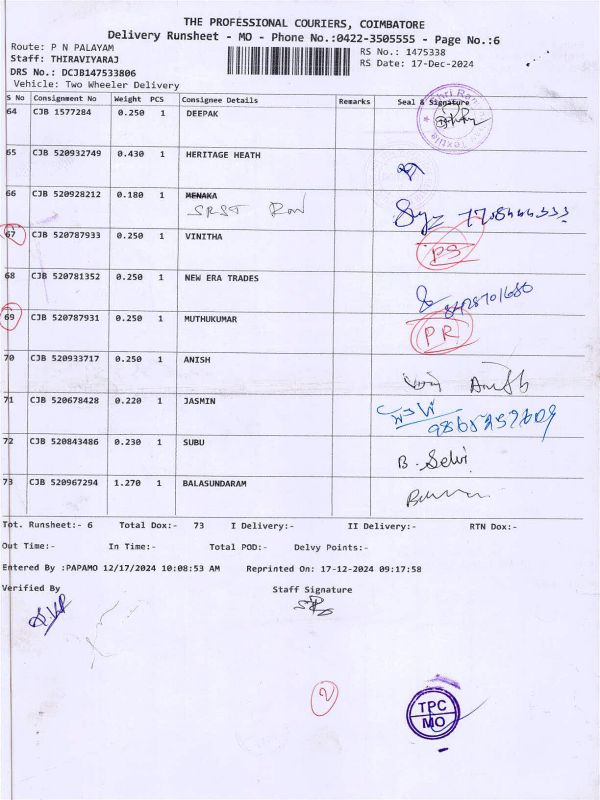 THE PROFESSIONAL COURIERS, COIMBATORE
Delivery Runsheet - MO - Phone No.:0422-3505555 - Page No.:6
Route: P N PALAYAM
RS No.: 1475338
Staff: THIRAVIYARAJ
RS Date: 17-Dec-2024
DRS No.: DCJB147533806
Vehicle: Two Wheeler Delivery
S No Consignment No Weight PCS Consignee Details Remarks Seal & Signature
64 CJB 1577284 0.250 1 DEEPAK
65 CJB 520932749 0.430 1 HERITAGE HEATH
66 CJB 520928212 0.180 1 MENAKA
67 CJB 520787933 0.250 1 VINITHA
PS
68 CJB 520781352 0.250 1 NEW ERA TRADES
8428701680
69 CJB 520787931 0.250 1 MUTHUKUMAR
PR
70 CJB 520933717 0.250 1 ANISH
71 CJB 520678428 0.220 1 JASMIN
72 CJB 520843486 0.230 1 SUBU
B. Selvi
73 CJB 520967294 1.270 1 BALASUNDARAM
Tot. Runsheet:- 6 Total Dox:- 73 I Delivery:- II Delivery:- RTN Dox:-
Out Time:- In Time:- Total POD:- Delvy Points:-
Entered By :PAPAMO 12/17/2024 10:08:53 AM Reprinted On: 17-12-2024 09:17:58
Verified By Staff Signature
2
TPC
MO